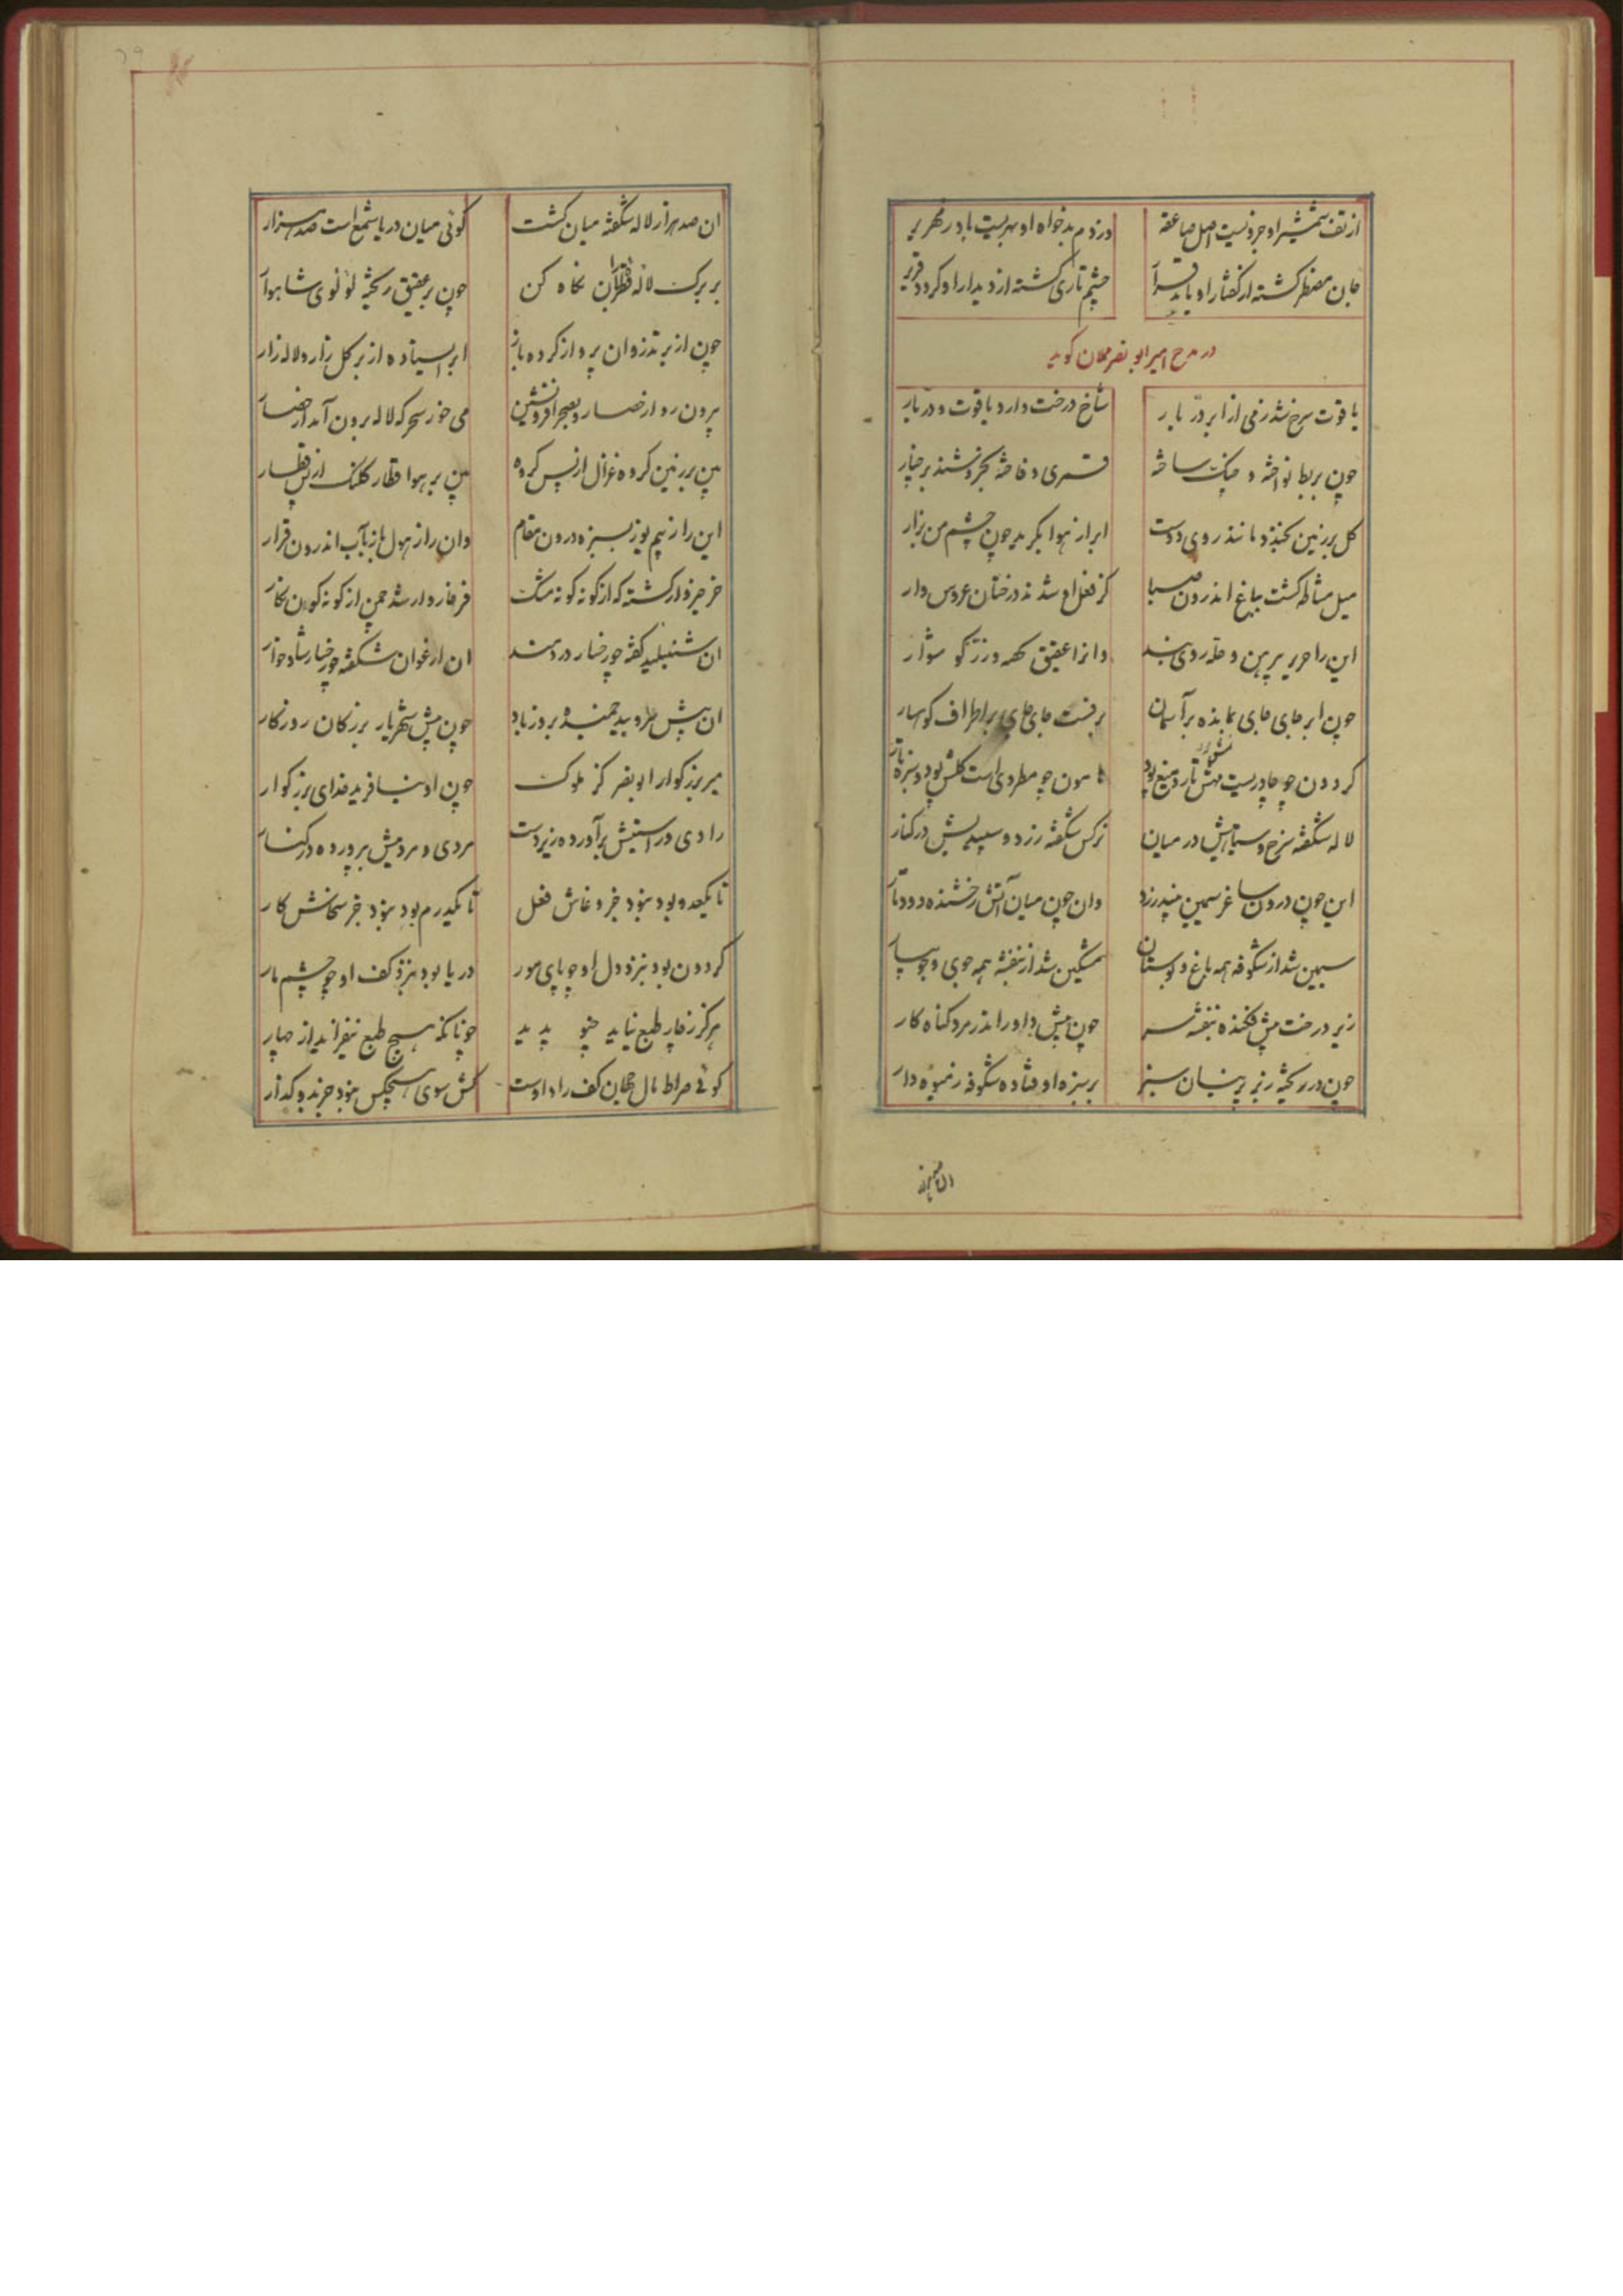 از تف شمشیر او جزویست اصل صاعقه
وز دم بدخواه او بهریست باد زمهریر
جان مضطر کشته از کفتار او یابد قرار
چشم تاری کشته از دیدار او کردد قریر
در مدح امیر ابو نصر مملان کوید
یاقوت سرخ شد زمی از ابر در بار
شاخ درخت دارد یاقوت و در بار
چون بربط نواخته و چنک ساخته
قمری و فاخته بخروشند بر چنار
کل بر زمین بخندد مانند روی دوست
ابر از هوا بکرید چون چشم من بزار
میل مشاطه کشت بباغ اندرون صبا
کز فعل او شدند درختان عروس وار
این را حریر پیرهن و حله روی بند
وانرا عقیق و زر کوشوار
چون ابر جای جای بمانده بر آسمان
برفست جای جای بر اطراف کوهسار
کردون چو چادریست تار و میغ پود
هامون چو مطردی است کلش پود و سبزه تار
لاله شکفته سرخ و سیاهیش در میان
نرکس شکفته زرد و سپیدیش در کنار
این چون درون ساغر سیمین نبید زرد
وان چون میان آتش رخشنده دود تار
سیمین شد از شکوفه همه باغ و بوستان
مشکین شد از بنفشه همه جوی و جویبار
زیر درخت پیش فکنده بنفشه سر
چون پیش داور اندر مرد کناه کار
چون در ریخته زبر پرنیان سبز
بر سبزه اوفتاده شکوفه ز میوه دار
ان صد هزار لاله شکفته میان کشت
کوئی میان دریا شمع است صد هزار
بر برک لاله قطره باران نکاه کن
چون بر عقیق ریخته لؤلوی شاهوار
چون از بر تذروان پرواز کرده باز
ابر ایستاده از بر کلزار و لاله زار
بیرون رو از حصار و بصحرا فرو نشین
می خور سحر که لاله برون آمد از حصار
بین بر زمین کروه غزال از پس کروه
بین بر هوا قطار کلنک از پس قطار
این را ز بیم یوز بسبزه درون مقام
وان را ز هول باز بآب اندرون قرار
خرخیزوار کشته که از کونه کونه مشک
فرخاروار شد چمن از کونه کون نکار
ان شنبلید کفته چو رخسار دردمند
ان ارغوان شکفته چو رخسار شادخوار
ان پیش بید خمیده بروز باد
چون پیش شهریار بزرکان روزکار
میر بزرکوار ابو نصر کز ملوک
چون او نیافرید خدای بزرکوار
رادی در استینش برآورده زیر دست
مردی و مردمیش بپرورده در کنار
تا یکعدو بود نبود جز وغاش فعل
تا یکدرم بود نبود جز سخاش کار
کردون بود بنزد دل او چو پای مور
دریا بود بنزد کف او چو چشم مار
هرکز ز چار طبع نیاید چنو پدید
چونانکه هیچ طبع نیفزاید از چهار
کوئی صراط مال جهان کف راد اوست
کش سوی هیچکس نبود جز بدو کذار